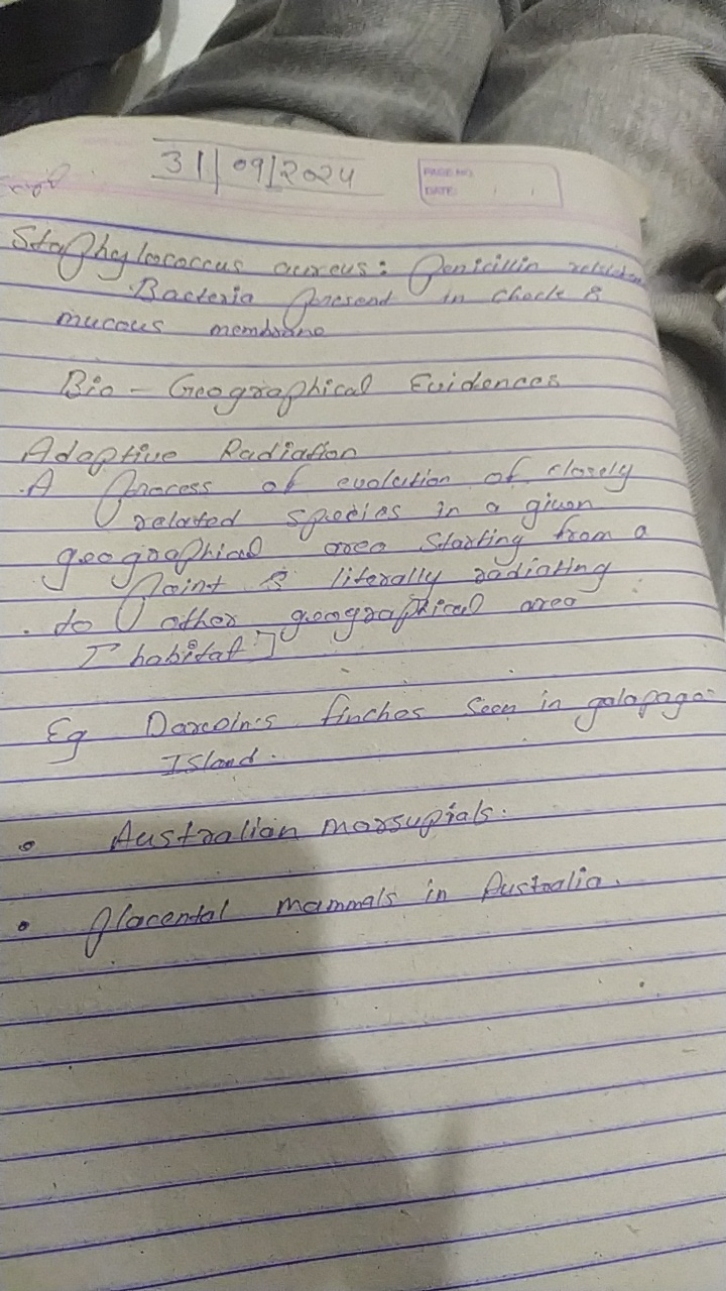 31/09/2024
PAGE NO
DATE: / /
Staphylococcus aureus: Penicillin
Bacteria present in cheek &
mucous membrane
Bio - Geographical Evidences
Adaptive Radiation
.A process of evolution of closely
related species in a given
geographical area starting from a
point & literally radiating
. to other geographical area
[habitat]
Eg Darwin's finches seen in galapago
Island.
• Australian marsupials.
• placental mammals in Australia.